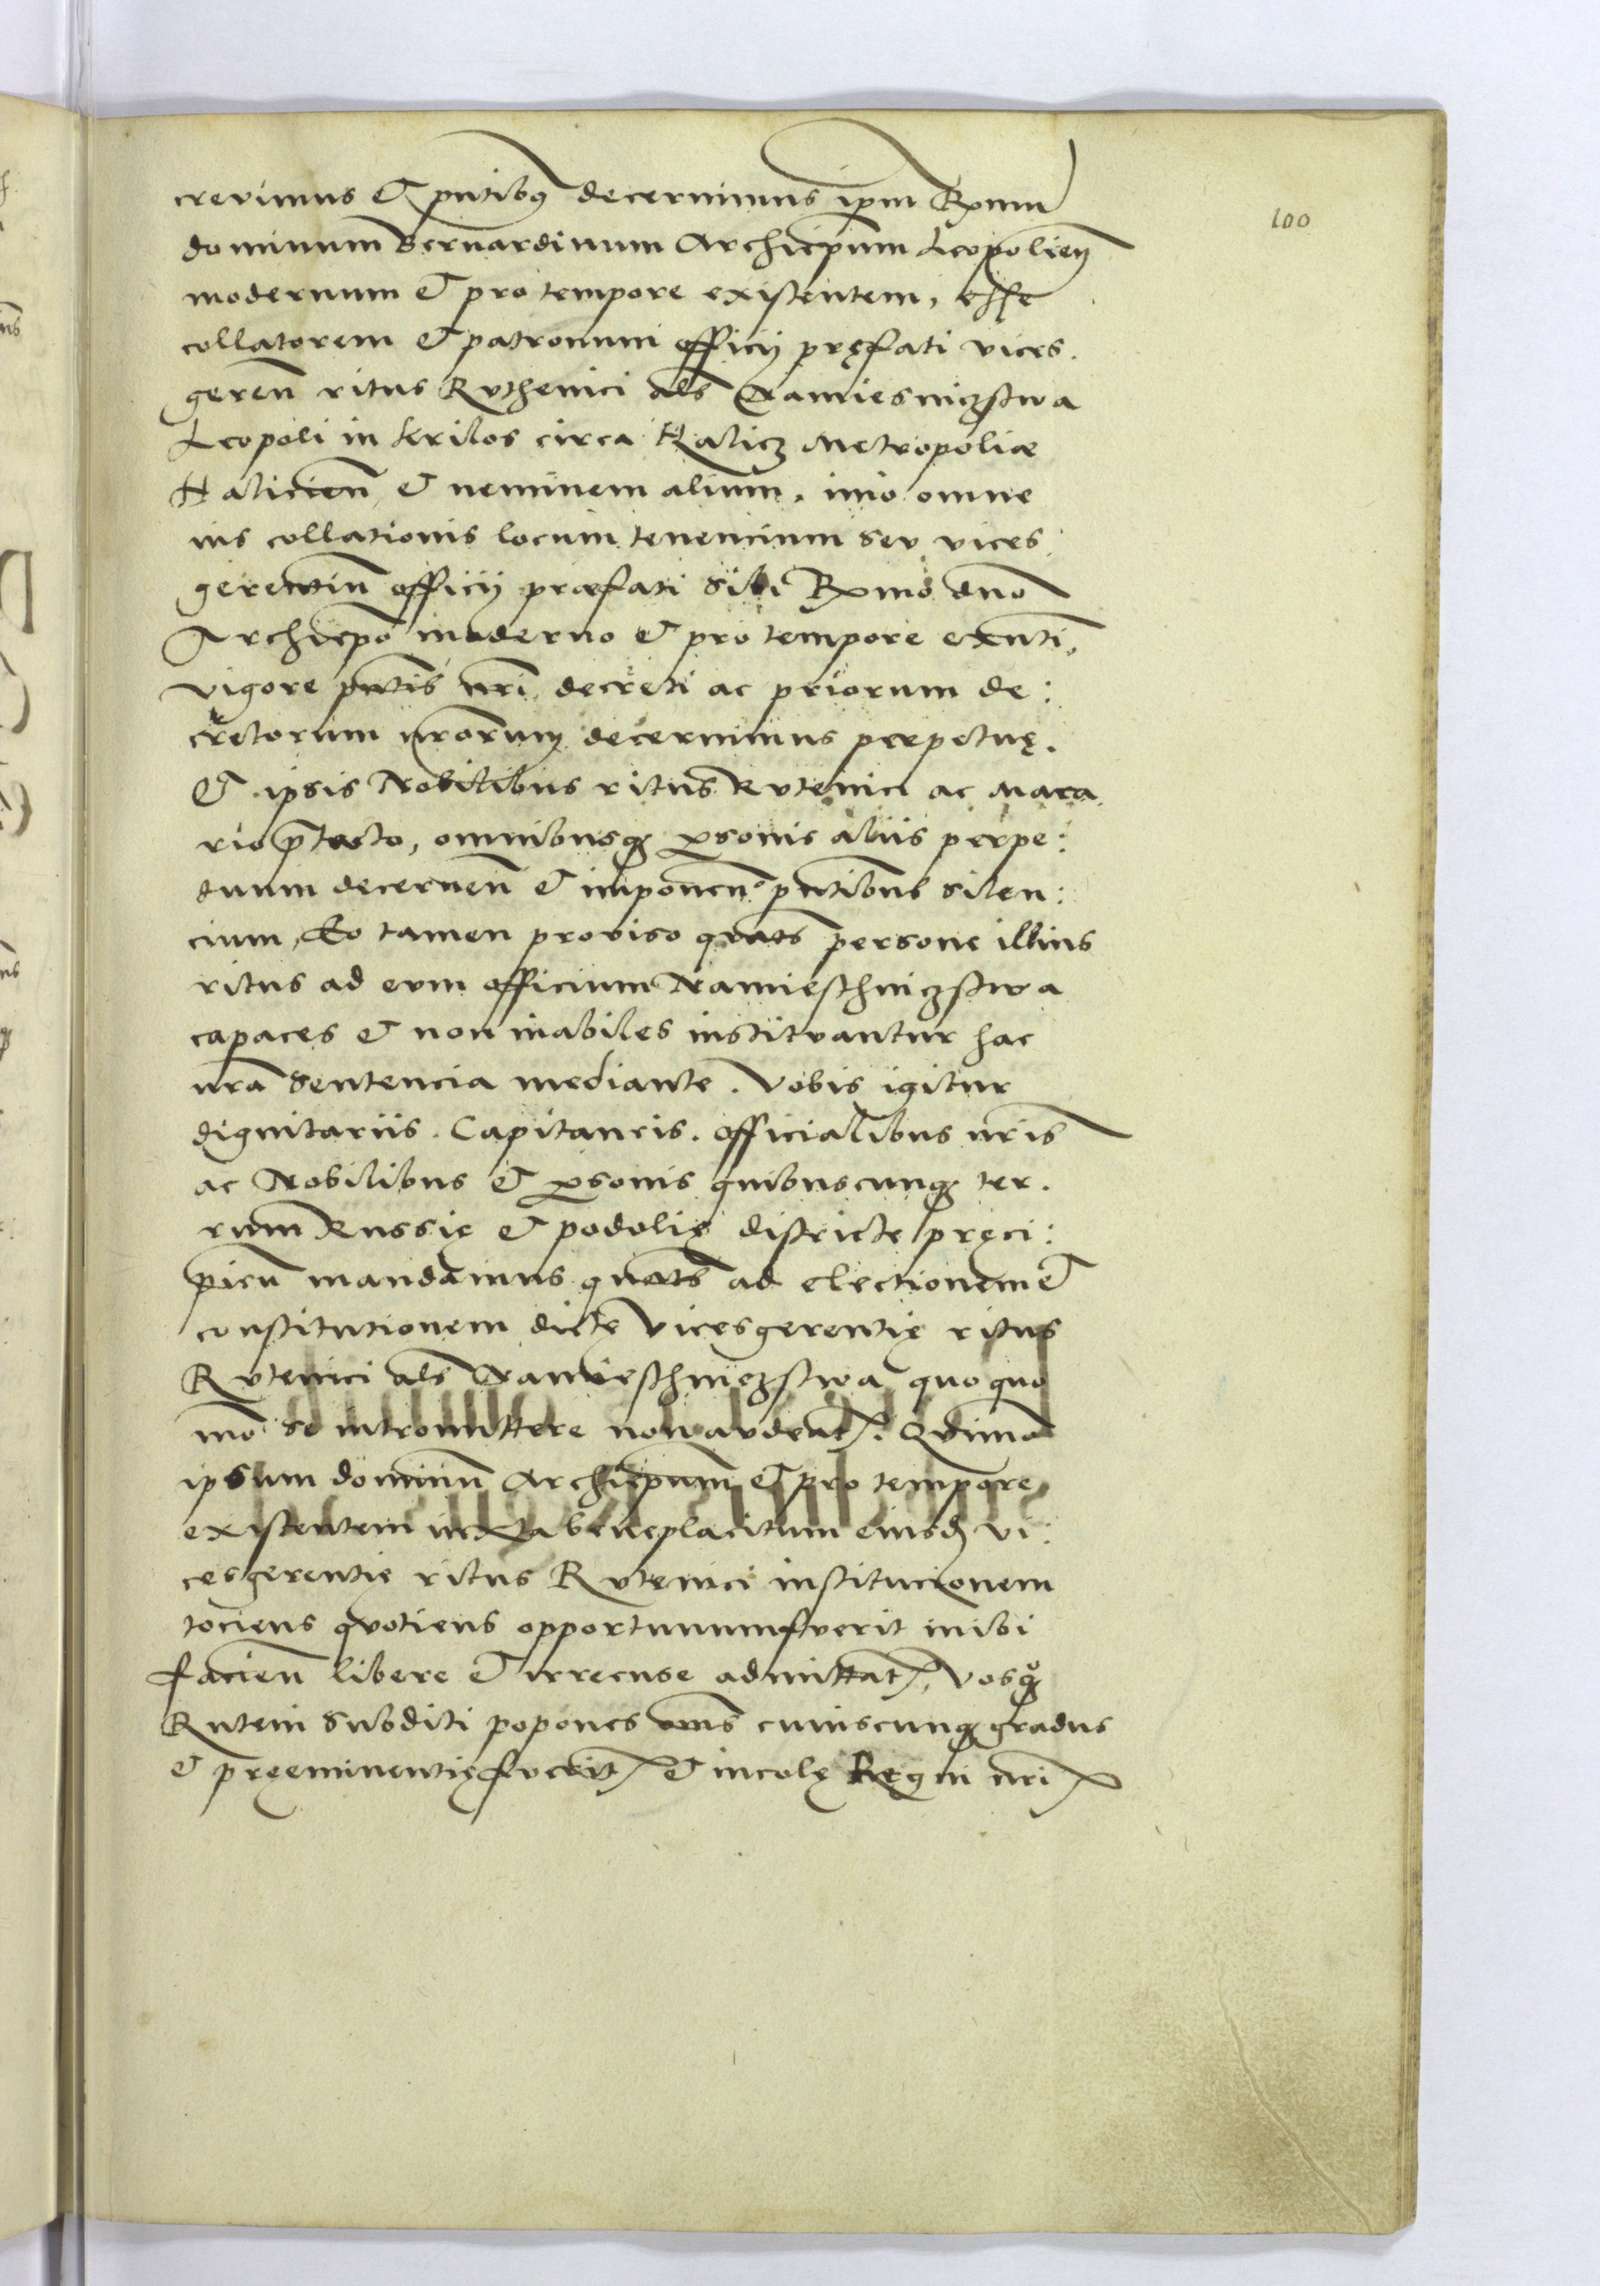 100
crevimus et pntibus decernimus ipm Rxmum
dominum Bernardinum Archiepum Leopolien
modernum et pro tempore existentem, esse
collatorem et patronum officij pręfati vices.
geren ritus Ruthenici als Namiesniczstwa
Leopoli in krilos circa Halicz Metropoliæ
Halicien et neminem alium. imo omne
ius collationis locum tenencium seu vices:
gerentiu officij præfati sibi Rxmo dno
Archiepo moderno et pro tempore exnti,
vigore pntis nri decreti ac priorum de:
cretorum nrorum decernimus perpetuę.
Et ipsis Nobilibus ritus Rutenici ac Maca
rio ptacto, omnibusq personis aliis perpe:
tuum decernen et imponen pntibus silen:
cium, Eo tamen proviso quats persone illius
ritus ad eum officium Namieschniczstwa
capaces et non inabiles instituantur hac
nra sentencia mediante. Vobis igitur
dignitariis. Capitaneis. officialibus nris
ac Nobilibus et personis quibuscunq ter.
rum Russię et podolię districte pręci:
pien mandamus quats ad electionem et
constitutionem dictę Vicesgerentię ritus
Rutenici als Namieschniczstwa quoquo
mo se intromittere non audeat. Qdimo
ipsum dominu Archiepum et pro tempore
existentem iuxta beneplacitum eiusd vi:
cesgerentię ritus Rutenici institucionem
tociens quotiens opportunum fuerit inibi
facien libere et irrecuse admittat, Vosq
Ruteni subditi popones oms cuiuscunq gradus
et pręeminentię fuerit et incolę Regni nri